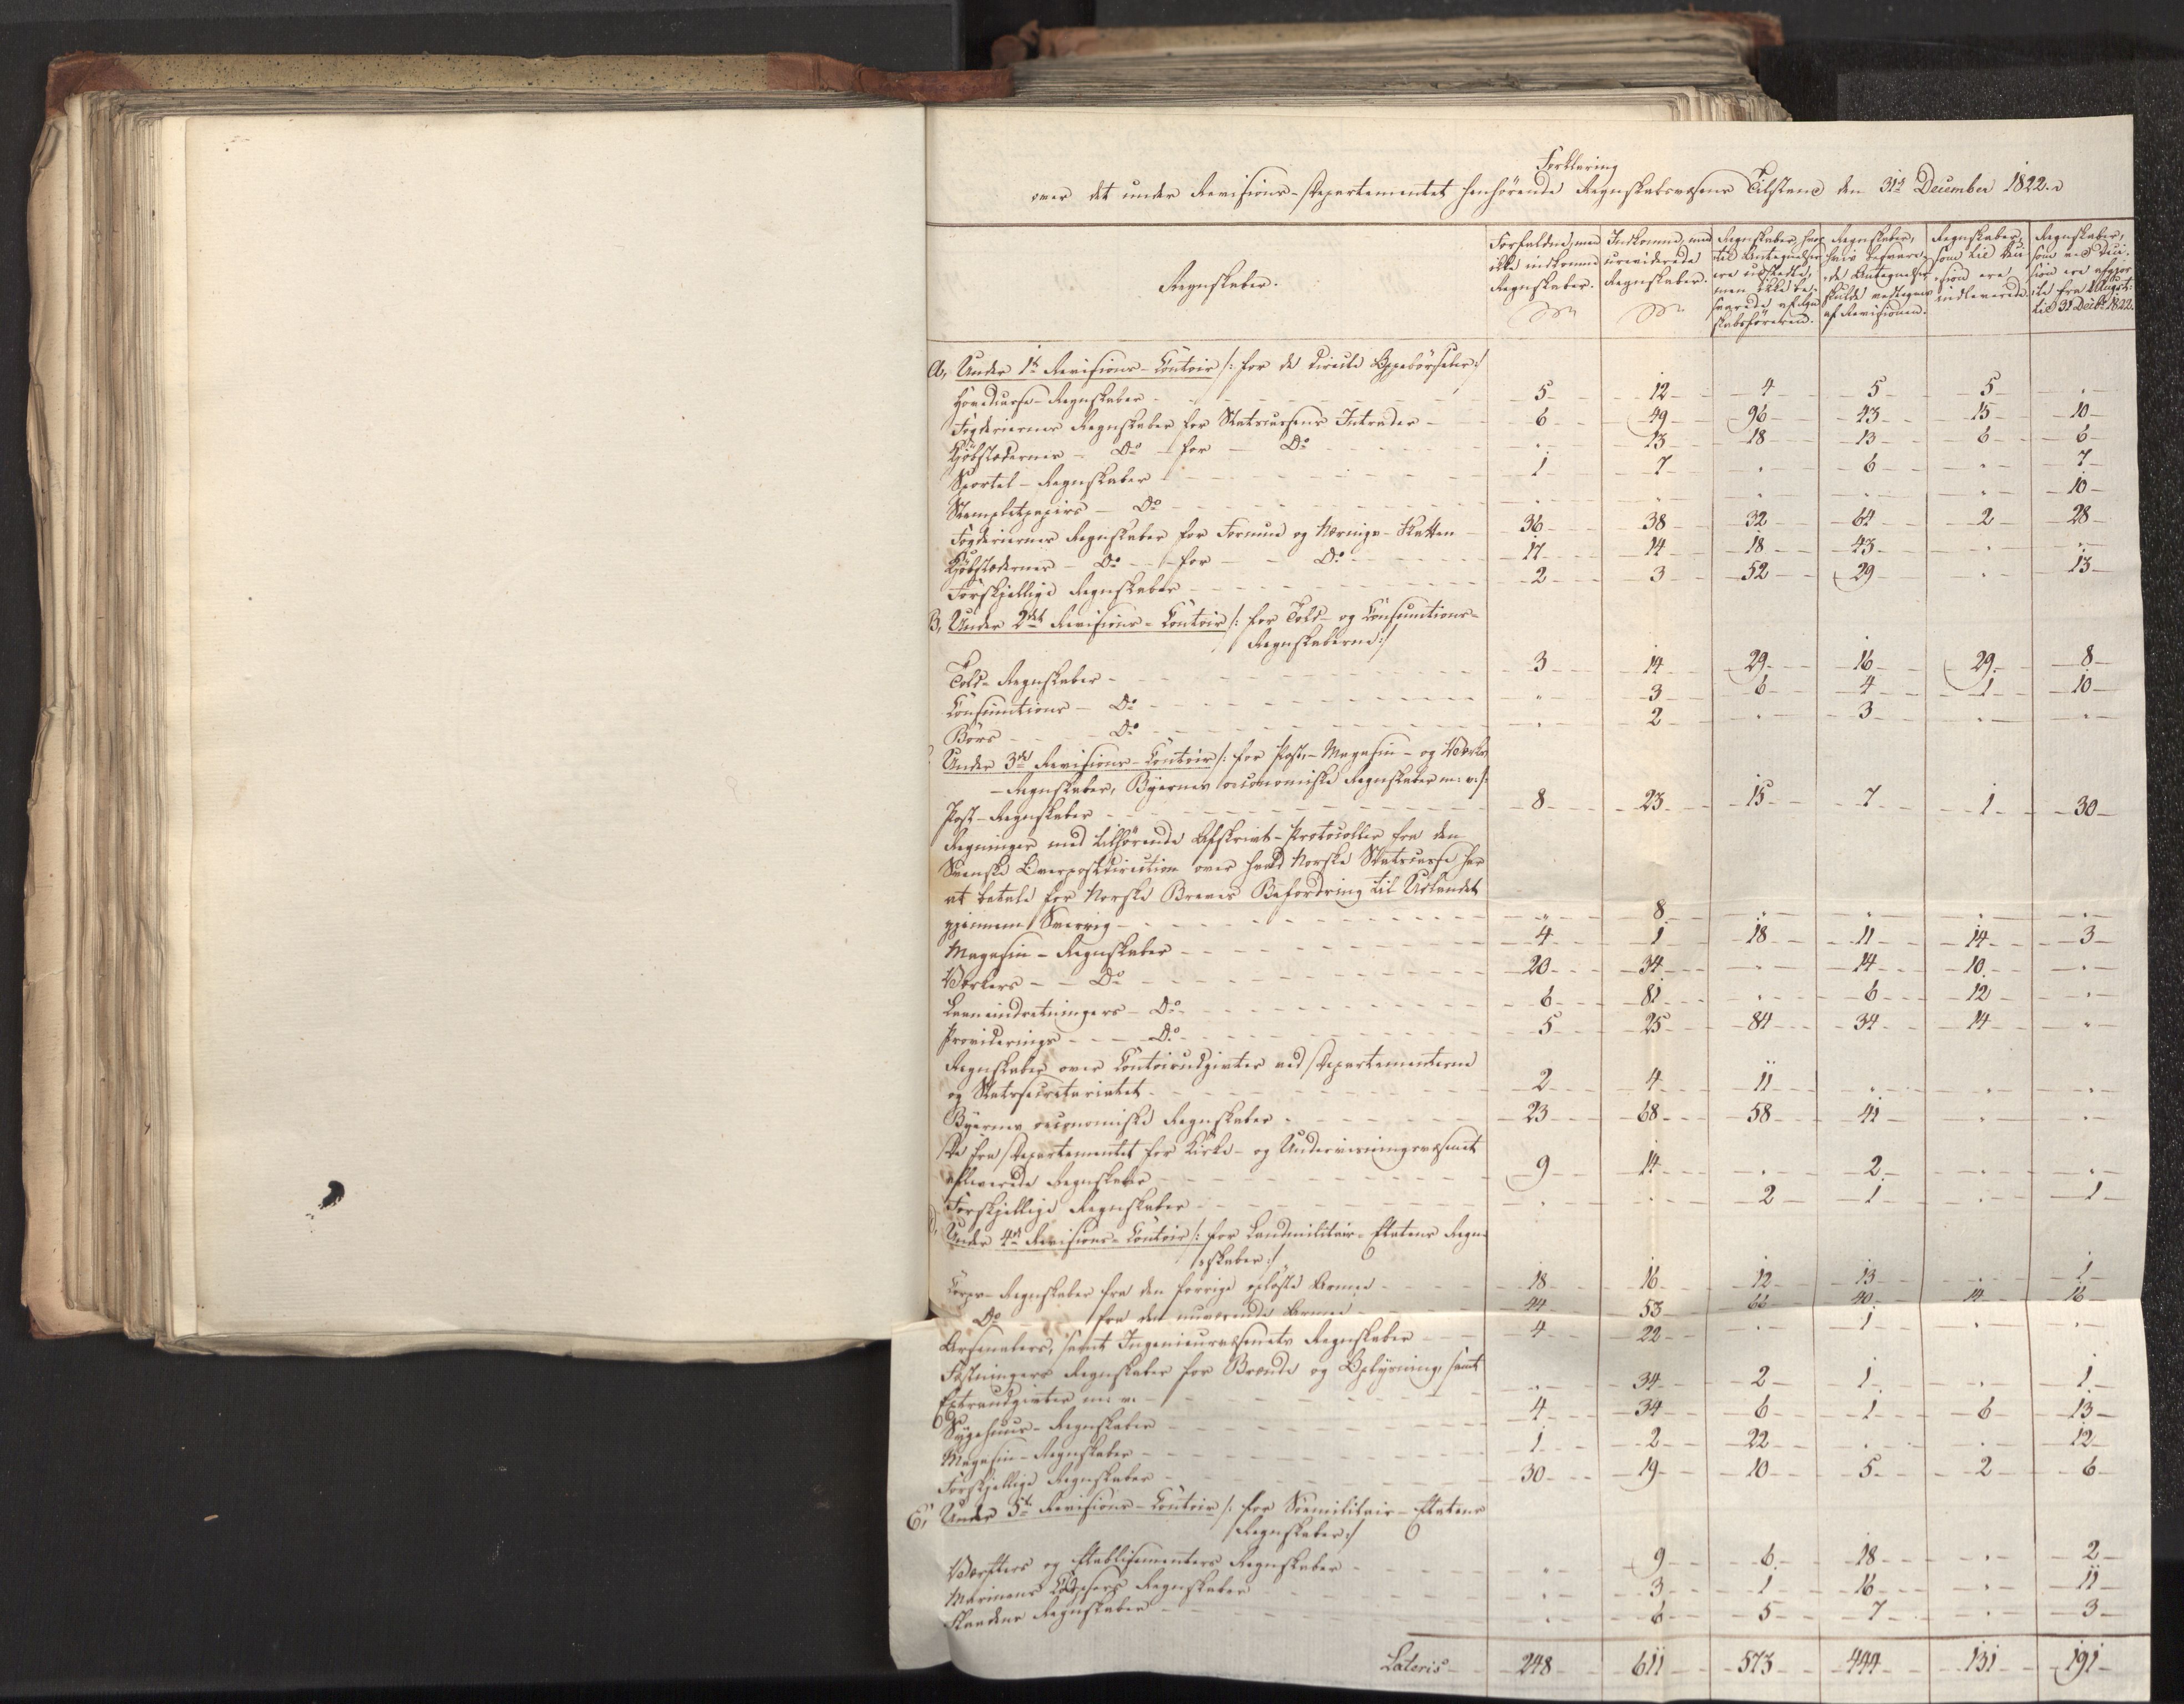 Forklaring
over det under Revisions-Departementet henhørende Regnskabsvæsens Tilstand den 31te December 1822.
Regnskaber.
Forfaldne, men
ikke indkomne
Regnskaber.
Indkomne, men
ureviderede
Regnskaber.
Regnskaber, hvor-
til Antegnelser
ere udstedte,
men ikke be-
svarede af Regn-
skabsføreren.
Regnskaber,
hvis besvare-
de Antegnelser
skulde modtages
af Revisionen.
Regnskaber,
som til Deci-
sion ere
indleverede.
Regnskaber,
som ved Deci-
sion ere afgjor-
te fra 1 August
til 31 Decbr 1822.
A, Under 1te Revisions-Contoir /: for de directe Oppebørseler :/
Hovedcasse-Regnskaber - 5 - 12 - 4 - 5 - 5 - "
Fogderiernes Regnskaber for Statscassens Intrader - 6 - 49 - 96 - 43 - 15 - 10
Kjøbstædernes - Do - for - Do - " - 13 - 18 - 13 - 6 - 6
Sportel-Regnskaber - 1 - 7 - " - 6 - " - 7
Stempletpapirs - Do - " - " - " - " - " - 10
Fogderiernes Regnskaber for Formue og Nærings-Skatten - 36 - 38 - 32 - 64 - 2 - 28
Kjøbstædernes - Do - for - Do - 17 - 14 - 18 - 43 - " - "
Forskjellige Regnskaber - 2 - 3 - 52 - 29 - " - 13
B, Under 2det Revisions-Contoir /: for Told- og Consumtions-
Regnskaberne :/
Told-Regnskaber - 3 - 14 - 29 - 16 - 29 - 8
Consumtions - Do - " - 3 - 6 - 4 - 1 - 10
Børs - Do - " - 2 - " - 3 - " - "
Under 3die Revisions-Contoir /: for Post,- Magasin- og Værks
-Regnskaber, Byernes oeconomiske Regnskaber m: v: :/
Post-Regnskaber - 8 - 23 - 15 - 7 - 1 - 30
Regninger med tilhørende Afskrivt-Protocoller fra den
Svenske Overpostdirection over hvad Norske Statscasse har
at betale for Norske Breves Befordring til Udlandet
gjennem Sverrig - " - 8 - " - " - " - "
Magasin-Regnskaber - 4 - 1 - 18 - 11 - 14 - 3
Værkers - Do - 20 - 34 - " - 14 - 10 - "
Laaneindretningers - Do - 6 - 81 - " - 6 - 12 - "
Provideringe - Do - 5 - 25 - 84 - 34 - 14 - "
Regnskaber over Contoirudgivter ved Departementerne
og Statssecretariatet - 2 - 4 - 11 - " - " - "
Byernes oeconomiske Regnskaber - 23 - 68 - 58 - 41 - " - "
De fra Departementet for Kirke- og Underviisningsvæsenet
afleverede Regnskaber - 9 - 14 - " - 2 - " - "
Forskjellige Regnskaber - " - " - 2 - 1 - " - 1
D, Under 4de Revisions-Contoir /: for Landmilitair-Etatens Regn-
skaber :/
Corps-Regnskaber fra den forrige opløste Armee - 18 - 16 - 12 - 13 - " - 1
Do - fra den nuværende Armee - 44 - 53 - 66 - 40 - 14 - 16
Arsenalers, samt Ingenieurvæsenets Regnskaber - 4 - 22 - " - 1 - " - "
Fæstningers Regnskaber for Brænde og Oplysning, samt
Extraudgivter m: v: - " - 34 - 2 - 1 - " - 1
Sygehuus-Regnskaber - 4 - 34 - 6 - 1 - 6 - 13
Magasin-Regnskaber - 1 - 2 - 22 - " - " - 12
Forskjellige Regnskaber - 30 - 19 - 10 - 5 - 2 - 6
E, Under 5te Revisions-Contoir /: for Sømilitair-Etatens
Regnskaber :/
Værfters og Etablisementers Regnskaber - " - 9 - 6 - 18 - " - 2
Marinens Regnskaber - " - 3 - 1 - 16 - " - 11
Regnskaber - " - 6 - 5 - 7 - " - 3
Lateris - 248 - 611 - 573 - 444 - 131 - 191